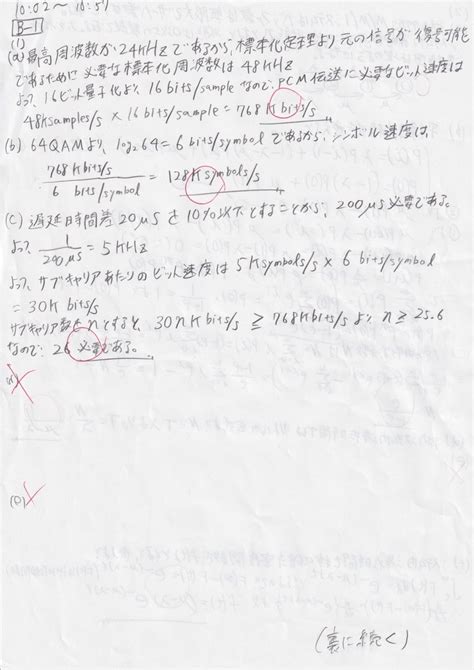 10:02〜10:51
B-1
(1)
(a) 最高周波数が24kHzであるから、標本化定理より元の信号が復号可能
であるために必要な標本化周波数は48kHz
よって、16ビット量子化より16bits/sampleなので、PCM伝送に必要なビット速度は
48ksamples/s × 16bits/sample = 768kbits/s
(b) 64QAMより、log₂64=6bits/symbolであるから、シンボル速度は、
768kbits/s / 6 bits/symbol = 128ksymbols/s
(c) 遅延時間差20μSを10%以下とすることから、200μS必要である。
よって、1/200μS = 5kHz
よって、サブキャリアあたりのビット速度は5ksymbols/s × 6 bits/symbol
= 30kbits/s
サブキャリア数をnとすると、30nkbits/s ≧ 768kbits/sより n≧25.6
なので、26必要である。
(d)
(e)
(裏に続く)